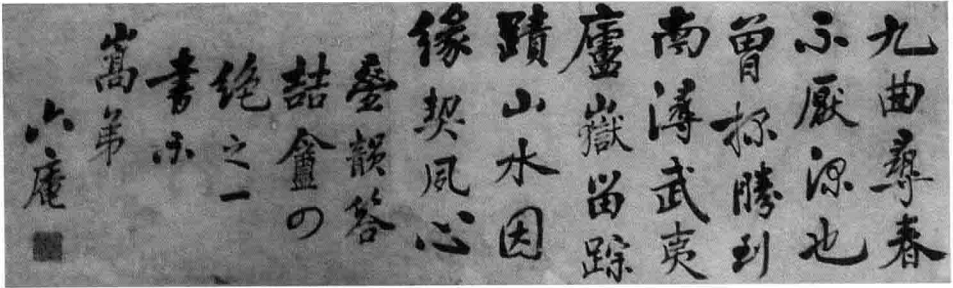 九曲尋春
不厭深也
曾探勝到
南潯武夷
廬嶽留踪
蹟山水因
緣契夙心
叠韻答
喆盦四
絶之一
書示
嵩弟
六庵